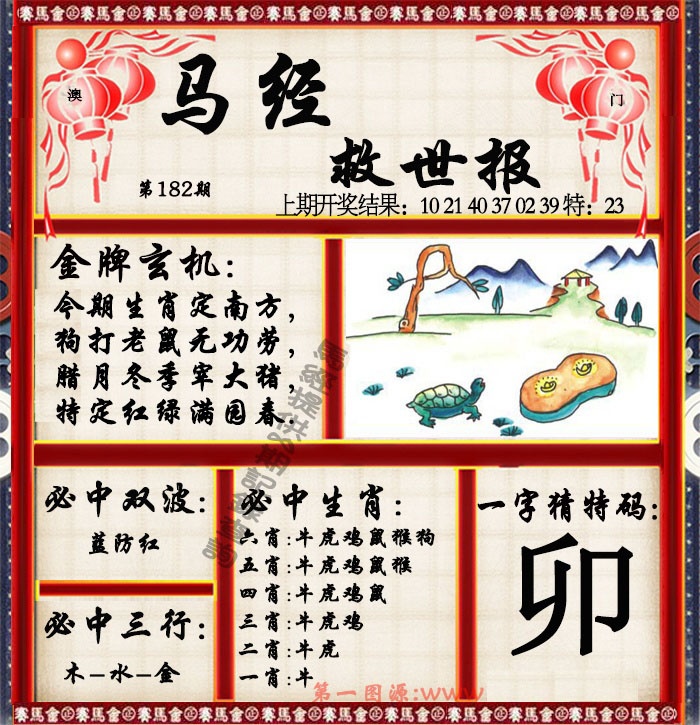 澳
门
马经
救世报
第182期
上期开奖结果：10 21 40 37 02 39 特：23
金牌玄机：
今期生肖定南方，
狗打老鼠无功劳，
腊月冬季宰大猪，
特定红绿满园春.
必中双波：
蓝防红
必中三行：
木-水-金
必中生肖：
六肖:牛虎鸡鼠猴狗
五肖:牛虎鸡鼠猴
四肖:牛虎鸡鼠
三肖:牛虎鸡
二肖:牛虎
一肖:牛
一字猜特码：
卯
第一图源:www